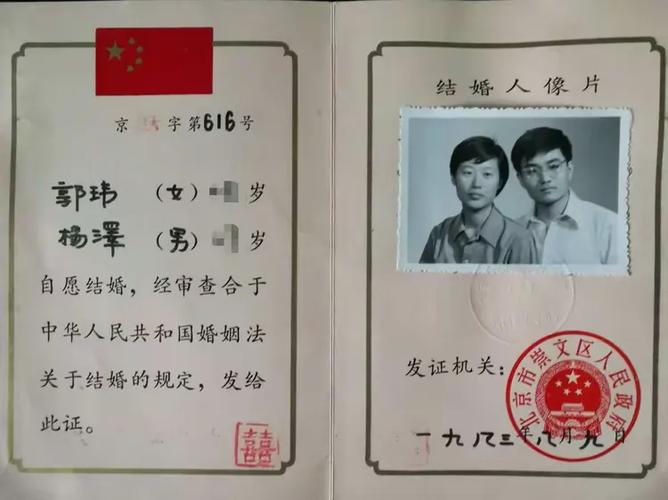 京 字第616号
郭玮 （女） 岁
杨澤 （男） 岁
自愿结婚，经审查合于
中华人民共和国婚姻法
关于结婚的规定，发给
此证。
囍
结婚人像片
发证机关：
北京市崇文区人民政府
一九八三年八月九日